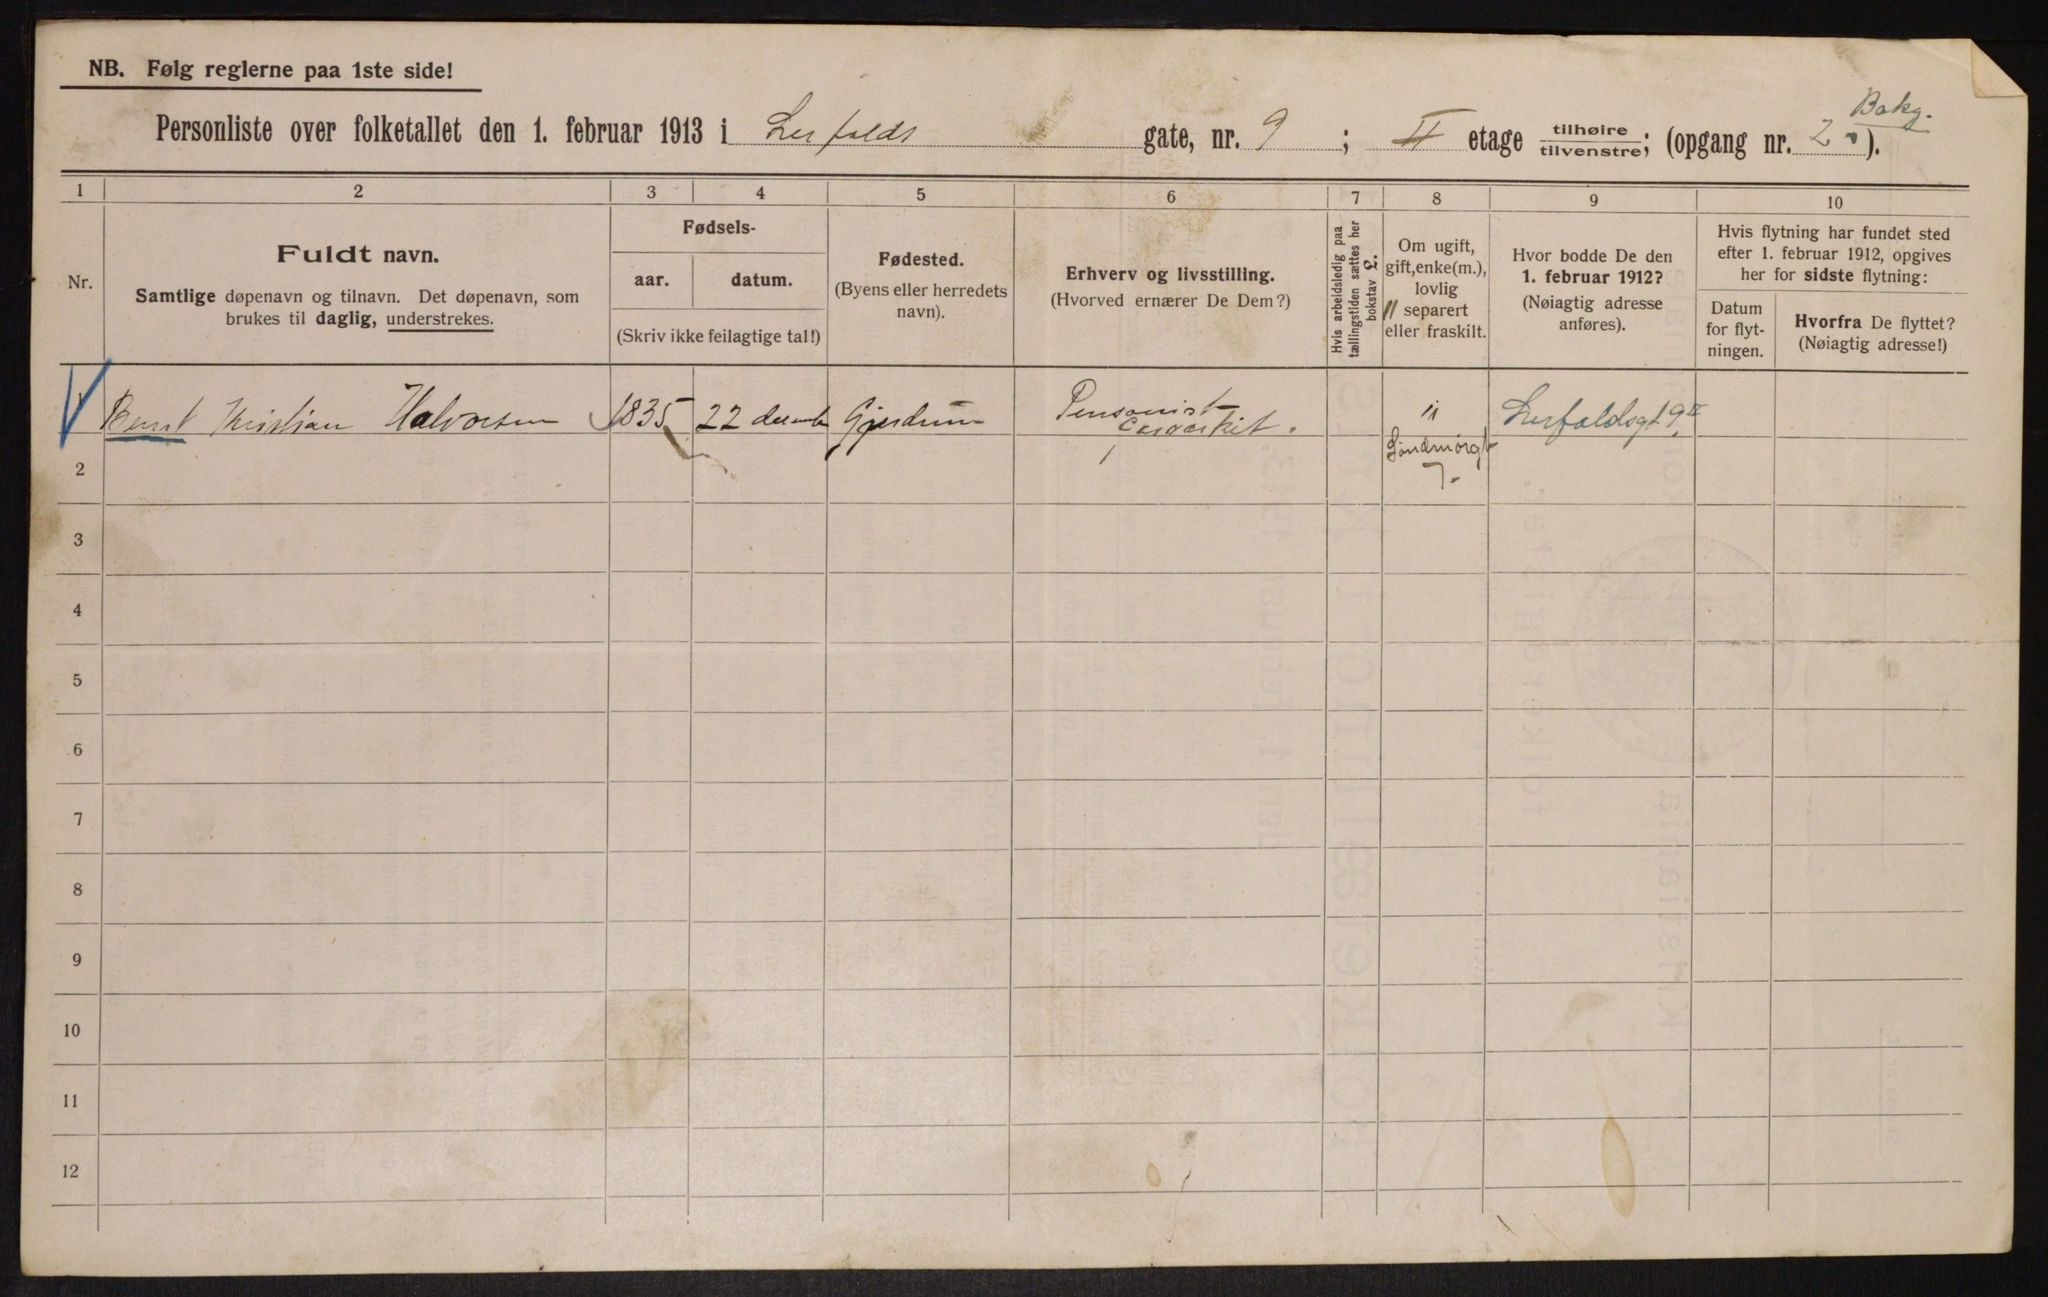 NB. Følg reglerne paa 1ste side!
Bakg.
Personliste over folketallet den 1. februar 1913 i Lerfolds gate, nr. 9 ; II etage tilhøire / tilvenstre; (opgang nr. 2 ).
1 2 3 4 5 6 7 8 9 10
Nr.
Fuldt navn.
Samtlige døpenavn og tilnavn. Det døpenavn, som
brukes til daglig, understrekes.
Fødsels-
aar. datum.
(Skriv ikke feilagtige tal!)
Fødested.
(Byens eller herredets
navn).
Erhverv og livsstilling.
(Hvorved ernærer De Dem?)
Hvis arbeidsledig paa
tællingstiden sættes her
bokstav L.
Om ugift,
gift, enke(m.),
lovlig
separert
eller fraskilt.
Hvor bodde De den
1. februar 1912?
(Nøiagtig adresse
anføres).
Hvis flytning har fundet sted
efter 1. februar 1912, opgives
her for sidste flytning:
Datum
for flyt-
ningen.
Hvorfra De flyttet?
(Nøiagtig adresse!)
1 Bernt Kristian Halvorsen 1835 22 decemb Gjerdrum Pensonist Lerfoldsgt 9 II
7.
2
3
4
5
6
7
8
9
10
11
12